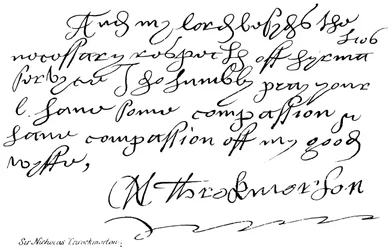 And my lord besyds the
necessary respects off hyr maties
servyce I do humbly pray your
l. have some compassion &
have compassion off my good
wyffe,
N Throkmorton
Sir Nicholas Throckmorton.